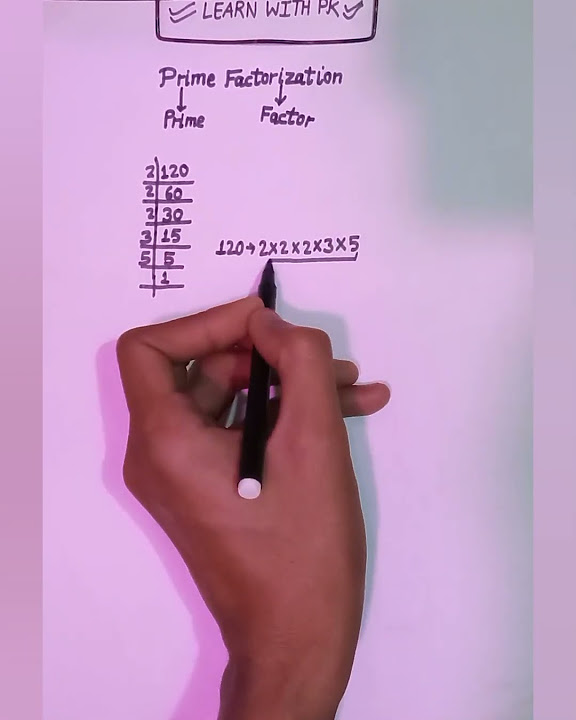 LEARN WITH PK
Prime Factorization
Prime Factor
2 120
2 60
2 30
3 15
5 5
1
120→2×2×2×3×5